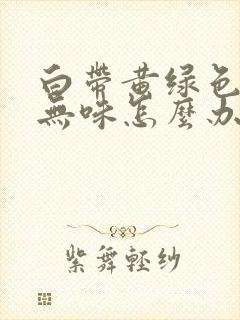 白帶黄绿色
無味怎麼办
紫舞轻纱